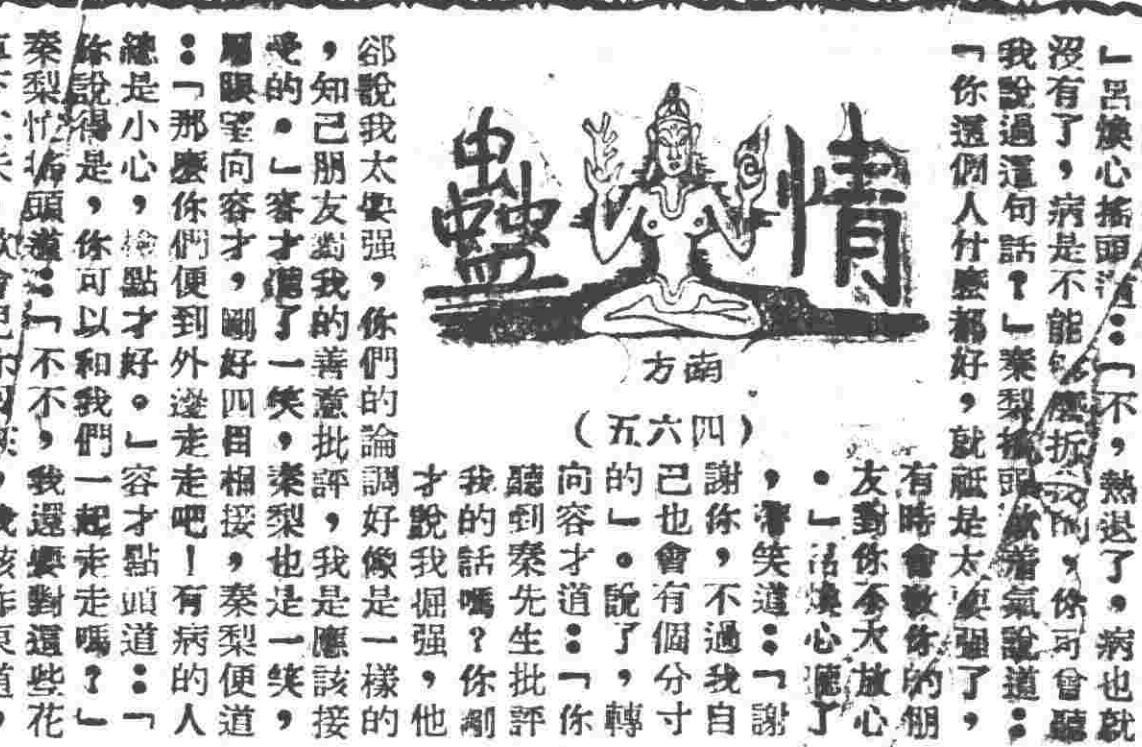 情蠱
南方
（四六五）
」呂煥心搖頭道：「不，熱退了。病也就
沒有了，病是不能折我的，你可曾聽
我說過這句話？」秦梨搖頭歎着氣說道：
「你這個人什麼都好，就祗是太要强了，
有時會敎你的朋
友對你不大放心
。」呂煥心聽了
，帶笑道：「謝
謝你，不過我自
己也會有個分寸
的」。說了，轉
向容才道：「你
聽到秦先生批評
我的話嗎？你剛
才說我掘强，他
郤說我太要强，你們的論調好像是一樣的
，知己朋友對我的善意批評，我是應該接
受的。」容才聽了一笑，秦梨也是一笑，
用眼望向容才，剛好四目相接，秦梨便道
：「那麼你們便到外邊走走吧！有病的人
總是小心，檢點才好。」容才點頭道：「
你說得是，你可以和我們一起走走嗎？」
秦梨忙搖頭道：「不不，我還要對這些花